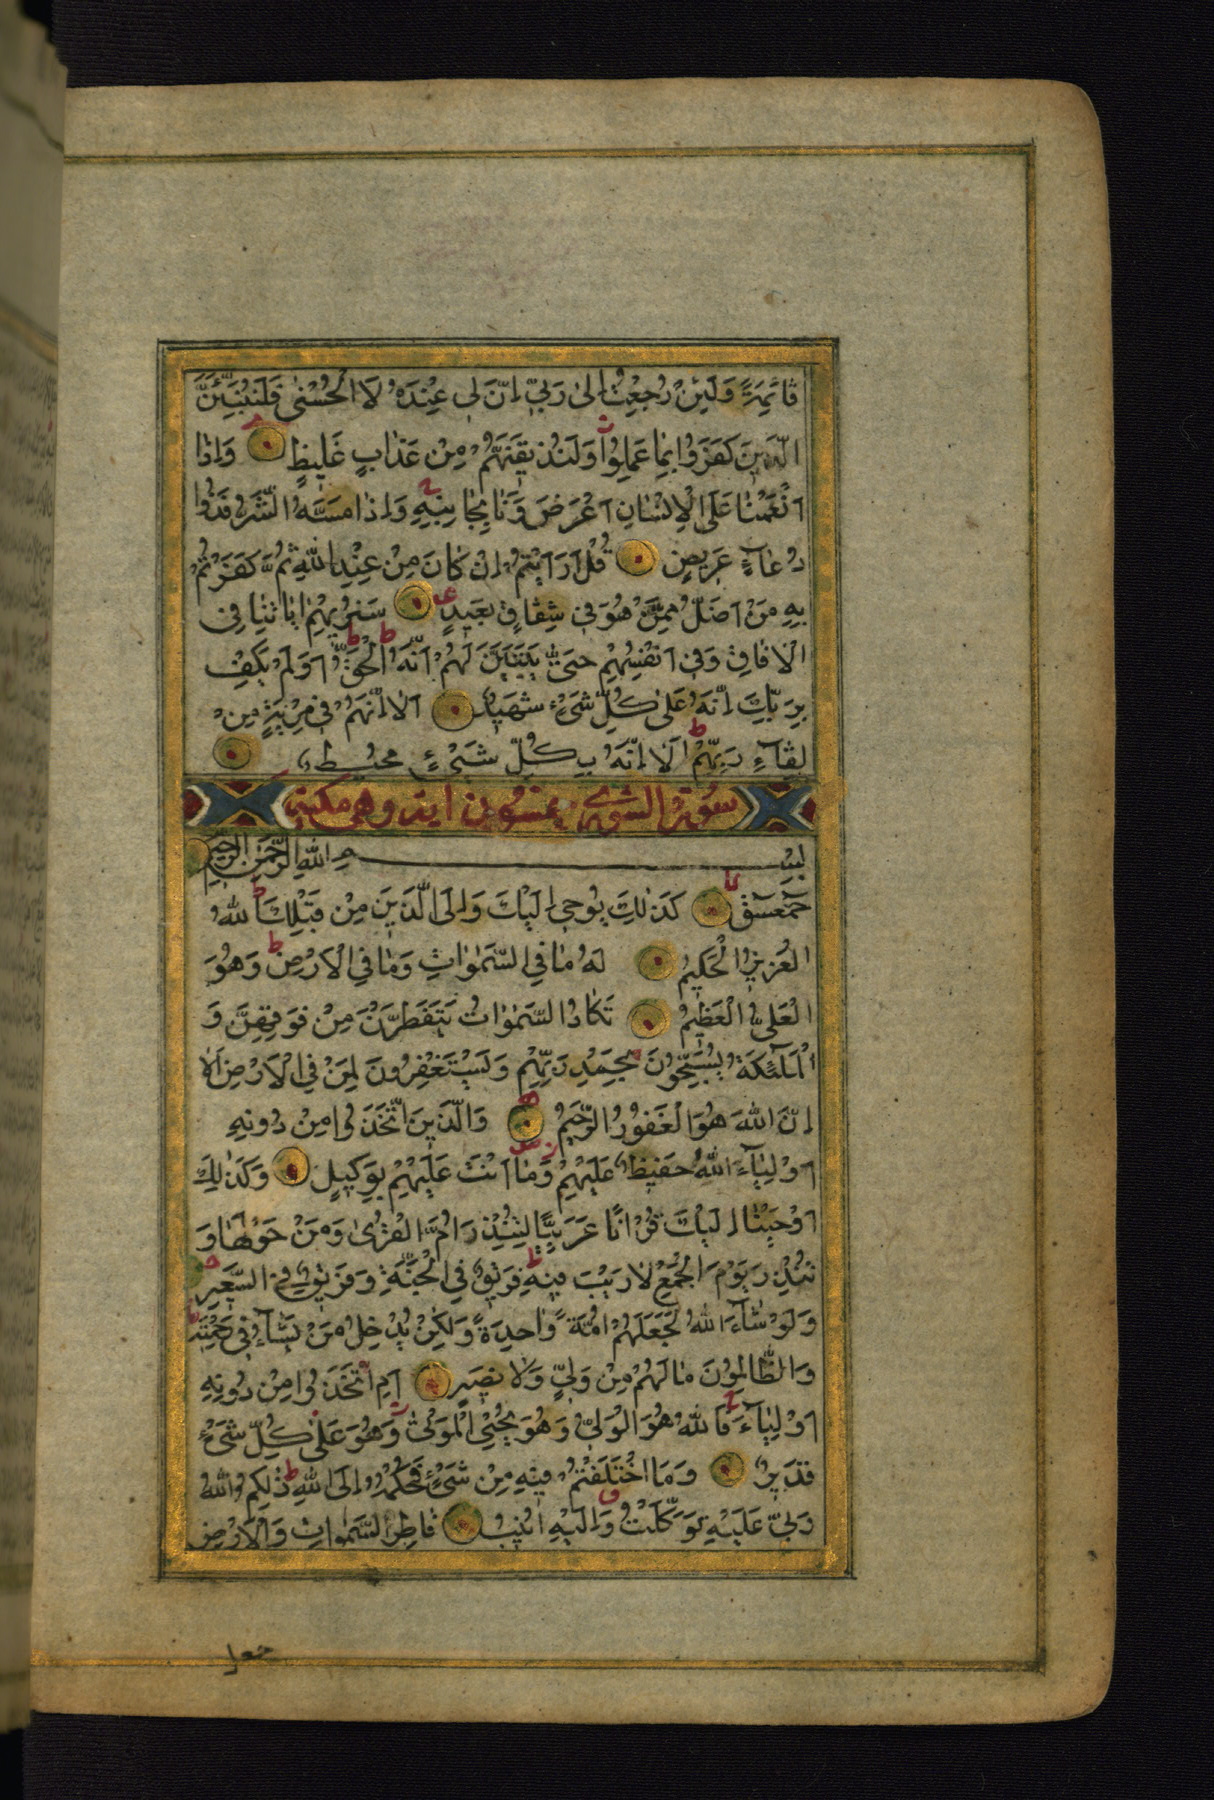 قَائِمَةً وَلَئِنْ رُجِعْتُ اِلٰى رَبّٖى اِنَّ لٖى عِنْدَهُ لَلْحُسْنٰى فَلَنُنَبِّئَنَّ
الَّذٖينَ كَفَرُوا بِمَا عَمِلُوا وَلَنُذٖيقَنَّهُمْ مِنْ عَذَابٍ غَلٖيظٍ وَاِذَا
اَنْعَمْنَا عَلَى الْاِنْسَانِ اَعْرَضَ وَنَاٰ بِجَانِبِهٖ وَاِذَا مَسَّهُ الشَّرُّ فَذُوا
دُعَآءٍ عَرٖيضٍ قُلْ اَرَاَيْتُمْ اِنْ كَانَ مِنْ عِنْدِ اللّٰهِ ثُمَّ كَفَرْتُمْ
بِهٖ مَنْ اَضَلُّ مِمَّنْ هُوَ فٖى شِقَاقٍ بَعٖيدٍ سَنُرٖيهِمْ اٰيَاتِنَا فِى
الْاٰفَاقِ وَفٖى اَنْفُسِهِمْ حَتّٰى يَتَبَيَّنَ لَهُمْ اَنَّهُ الْحَقُّ اَوَلَمْ يَكْفِ
بِرَبِّكَ اَنَّهُ عَلٰى كُلِّ شَىْءٍ شَهٖيدٌ اَلَا اِنَّهُمْ فٖى مِرْيَةٍ مِنْ
لِقَآءِ رَبِّهِمْ اَلَا اِنَّهُ بِكُلِّ شَىْءٍ مُحٖيطٌ
سورة الشورى اية وهى مكية
بِسْمِ اللّٰهِ الرَّحْمٰنِ الرَّحٖيمِ
حٰمٓ عٓسٓقٓ كَذٰلِكَ يُوحٖى اِلَيْكَ وَاِلَى الَّذٖينَ مِنْ قَبْلِكَ اللّٰهُ
الْعَزٖيزُ الْحَكٖيمُ لَهُ مَا فِى السَّمٰوَاتِ وَمَا فِى الْاَرْضِ وَهُوَ
الْعَلِىُّ الْعَظٖيمُ تَكَادُ السَّمٰوَاتُ يَتَفَطَّرْنَ مِنْ فَوْقِهِنَّ وَ
الْمَلٰٓئِكَةُ يُسَبِّحُونَ بِحَمْدِ رَبِّهِمْ وَيَسْتَغْفِرُونَ لِمَنْ فِى الْاَرْضِ اَلَا
اِنَّ اللّٰهَ هُوَ الْغَفُورُ الرَّحٖيمُ وَالَّذٖينَ اتَّخَذُوا مِنْ دُونِهٖ
اَوْلِيَآءَ اللّٰهُ حَفٖيظٌ عَلَيْهِمْ وَمَا اَنْتَ عَلَيْهِمْ بِوَكٖيلٍ وَكَذٰلِكَ
اَوْحَيْنَا اِلَيْكَ قُرْاٰنًا عَرَبِيًّا لِتُنْذِرَ اُمَّ الْقُرٰى وَمَنْ حَوْلَهَا وَ
تُنْذِرَ يَوْمَ الْجَمْعِ لَا رَيْبَ فٖيهِ فَرٖيقٌ فِى الْجَنَّةِ وَفَرٖيقٌ فِى السَّعٖيرِ
وَلَوْ شَآءَ اللّٰهُ لَجَعَلَهُمْ اُمَّةً وَاحِدَةً وَلٰكِنْ يُدْخِلُ مَنْ يَشَآءُ فٖى رَحْمَتِهٖ
وَالظَّالِمُونَ مَا لَهُمْ مِنْ وَلِىٍّ وَلَا نَصٖيرٍ اَمِ اتَّخَذُوا مِنْ دُونِهٖ
اَوْلِيَآءَ فَاللّٰهُ هُوَ الْوَلِىُّ وَهُوَ يُحْيِى الْمَوْتٰى وَهُوَ عَلٰى كُلِّ شَىْءٍ
قَدٖيرٌ وَمَا اخْتَلَفْتُمْ فٖيهِ مِنْ شَىْءٍ فَحُكْمُهُ اِلَى اللّٰهِ ذٰلِكُمُ اللّٰهُ
رَبّٖى عَلَيْهِ تَوَكَّلْتُ وَاِلَيْهِ اُنٖيبُ فَاطِرُ السَّمٰوَاتِ وَالْاَرْضِ
جعل